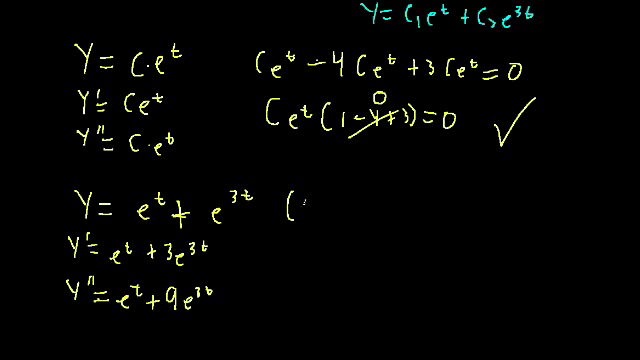 Y = C₁e^t + C₂e^3t
Y = C·e^t
Ce^t - 4Ce^t + 3Ce^t = 0
Y' = Ce^t
0
Ce^t(1-4+3) = 0 ✓
Y'' = C·e^t
Y = e^t + e^3t (
Y' = e^t + 3e^3t
Y'' = e^t + 9e^3t